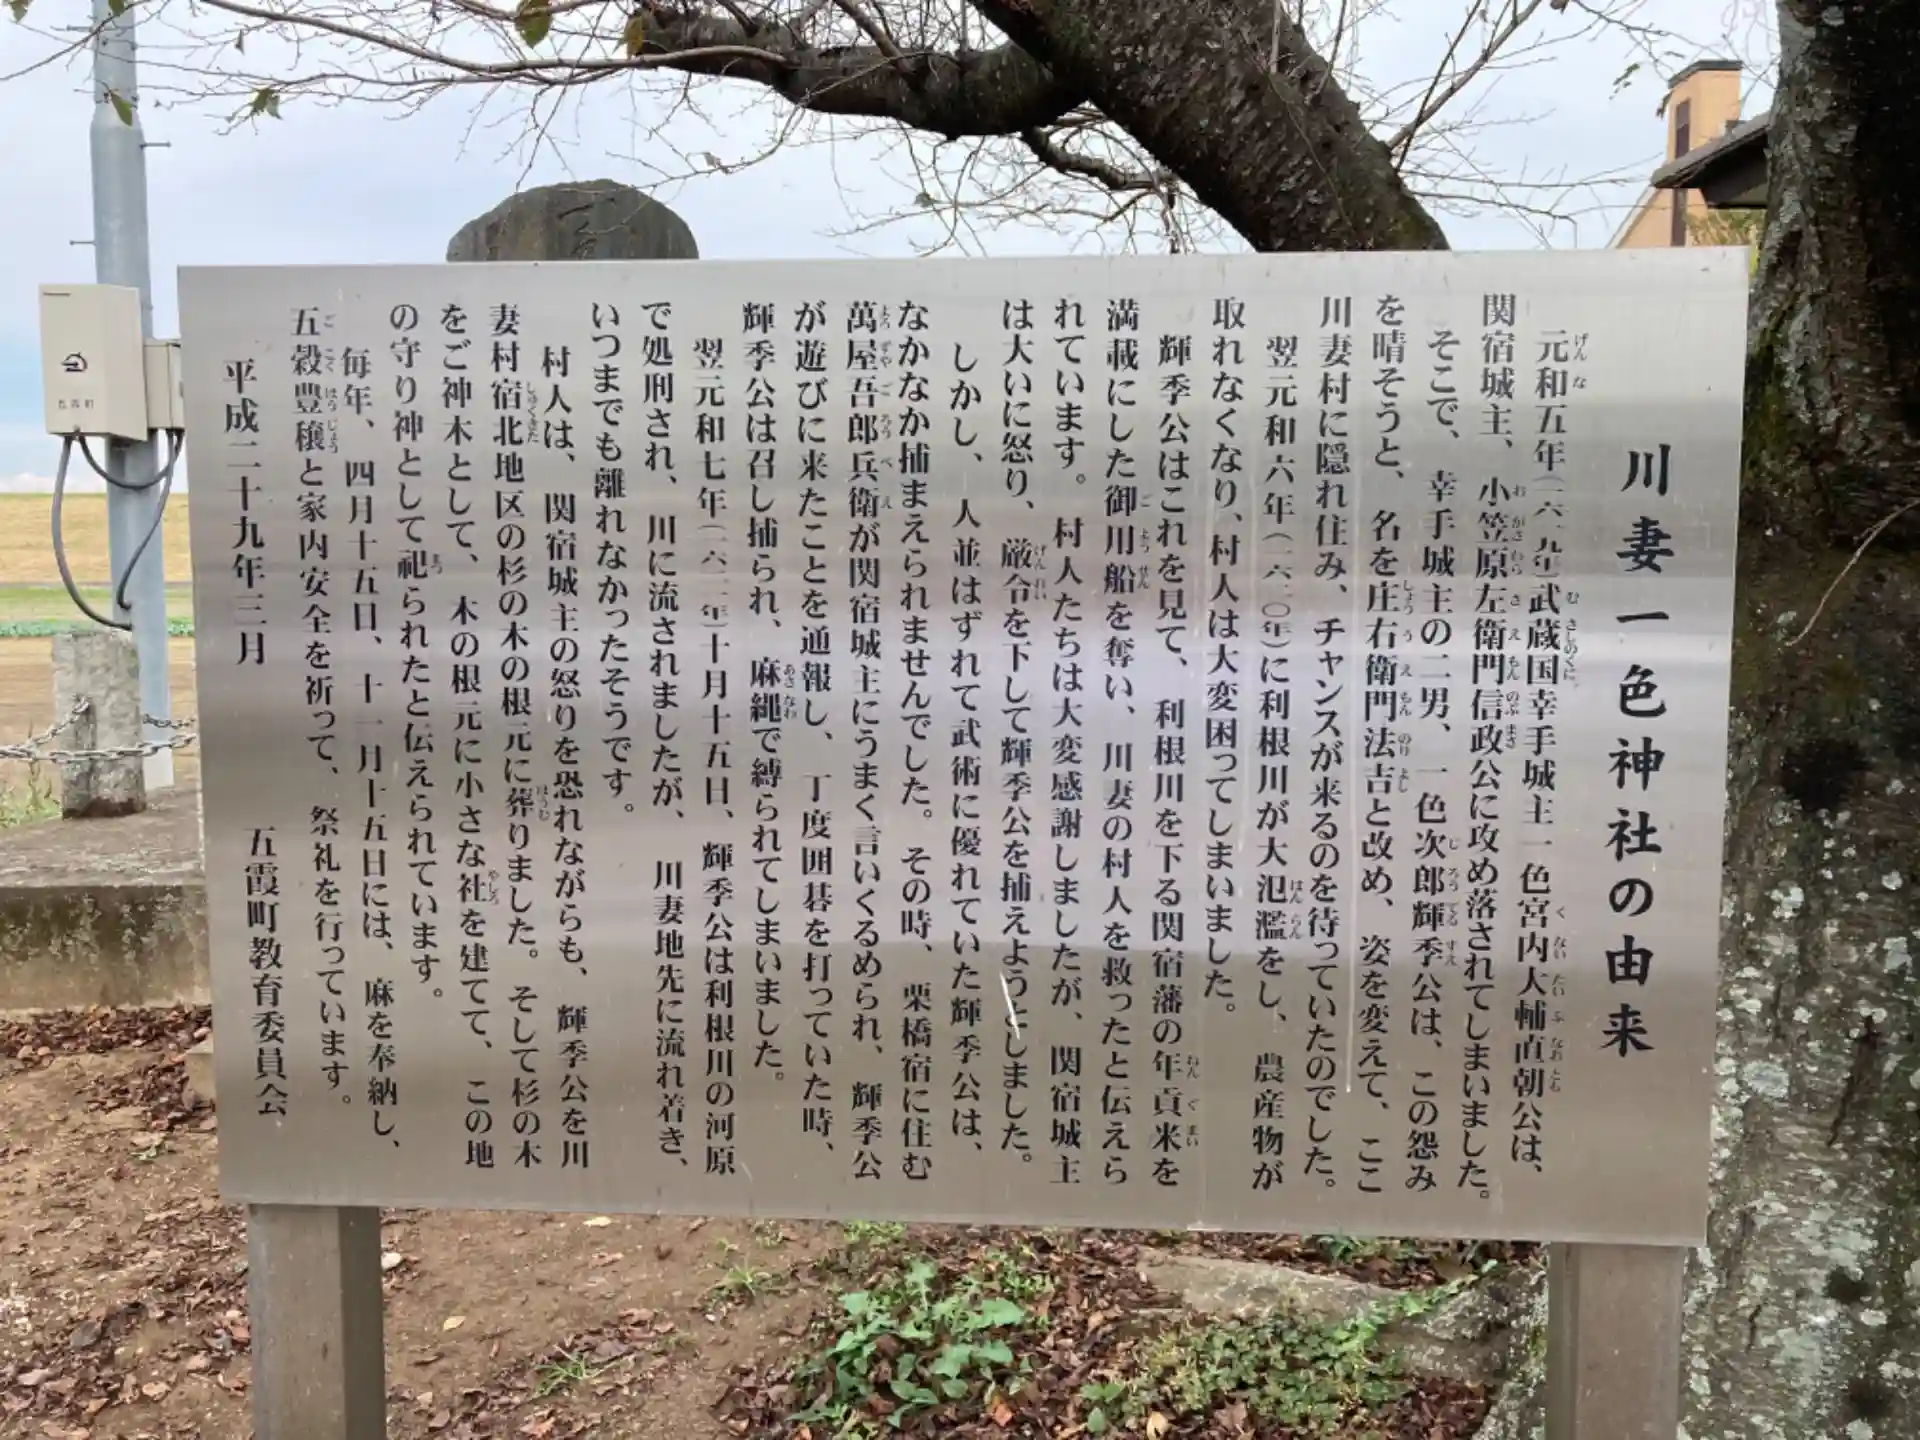 川妻一色神社の由来
元和五年(一六一九年)武蔵国幸手城主一色宮内大輔直朝公は、
関宿城主、小笠原左衛門信政公に攻め落されてしまいました。
そこで、幸手城主の二男、一色次郎輝季公は、この怨み
を晴そうと、名を庄右衛門法吉と改め、姿を変えて、ここ
川妻村に隠れ住み、チャンスが来るのを待っていたのでした。
翌元和六年(一六二〇年)に利根川が大氾濫をし、農産物が
取れなくなり、村人は大変困ってしまいました。
輝季公はこれを見て、利根川を下る関宿藩の年貢米を
満載にした御川船を奪い、川妻の村人を救ったと伝えら
れています。村人たちは大変感謝しましたが、関宿城主
は大いに怒り、厳令を下して輝季公を捕えようとしました。
しかし、人並はずれて武術に優れていた輝季公は、
なかなか捕まえられませんでした。その時、栗橋宿に住む
萬屋吾郎兵衛が関宿城主にうまく言いくるめられ、輝季公
が遊びに来たことを通報し、丁度囲碁を打っていた時、
輝季公は召し捕られ、麻縄で縛られてしまいました。
翌元和七年(一六二一年)十月十五日、輝季公は利根川の河原
で処刑され、川に流されましたが、川妻地先に流れ着き、
いつまでも離れなかったそうです。
村人は、関宿城主の怒りを恐れながらも、輝季公を川
妻村宿北地区の杉の木の根元に葬りました。そして杉の木
をご神木として、木の根元に小さな社を建てて、この地
の守り神として祀られたと伝えられています。
毎年、四月十五日、十一月十五日には、麻を奉納し、
五穀豊穣と家内安全を祈って、祭礼を行っています。
平成二十九年三月 五霞町教育委員会